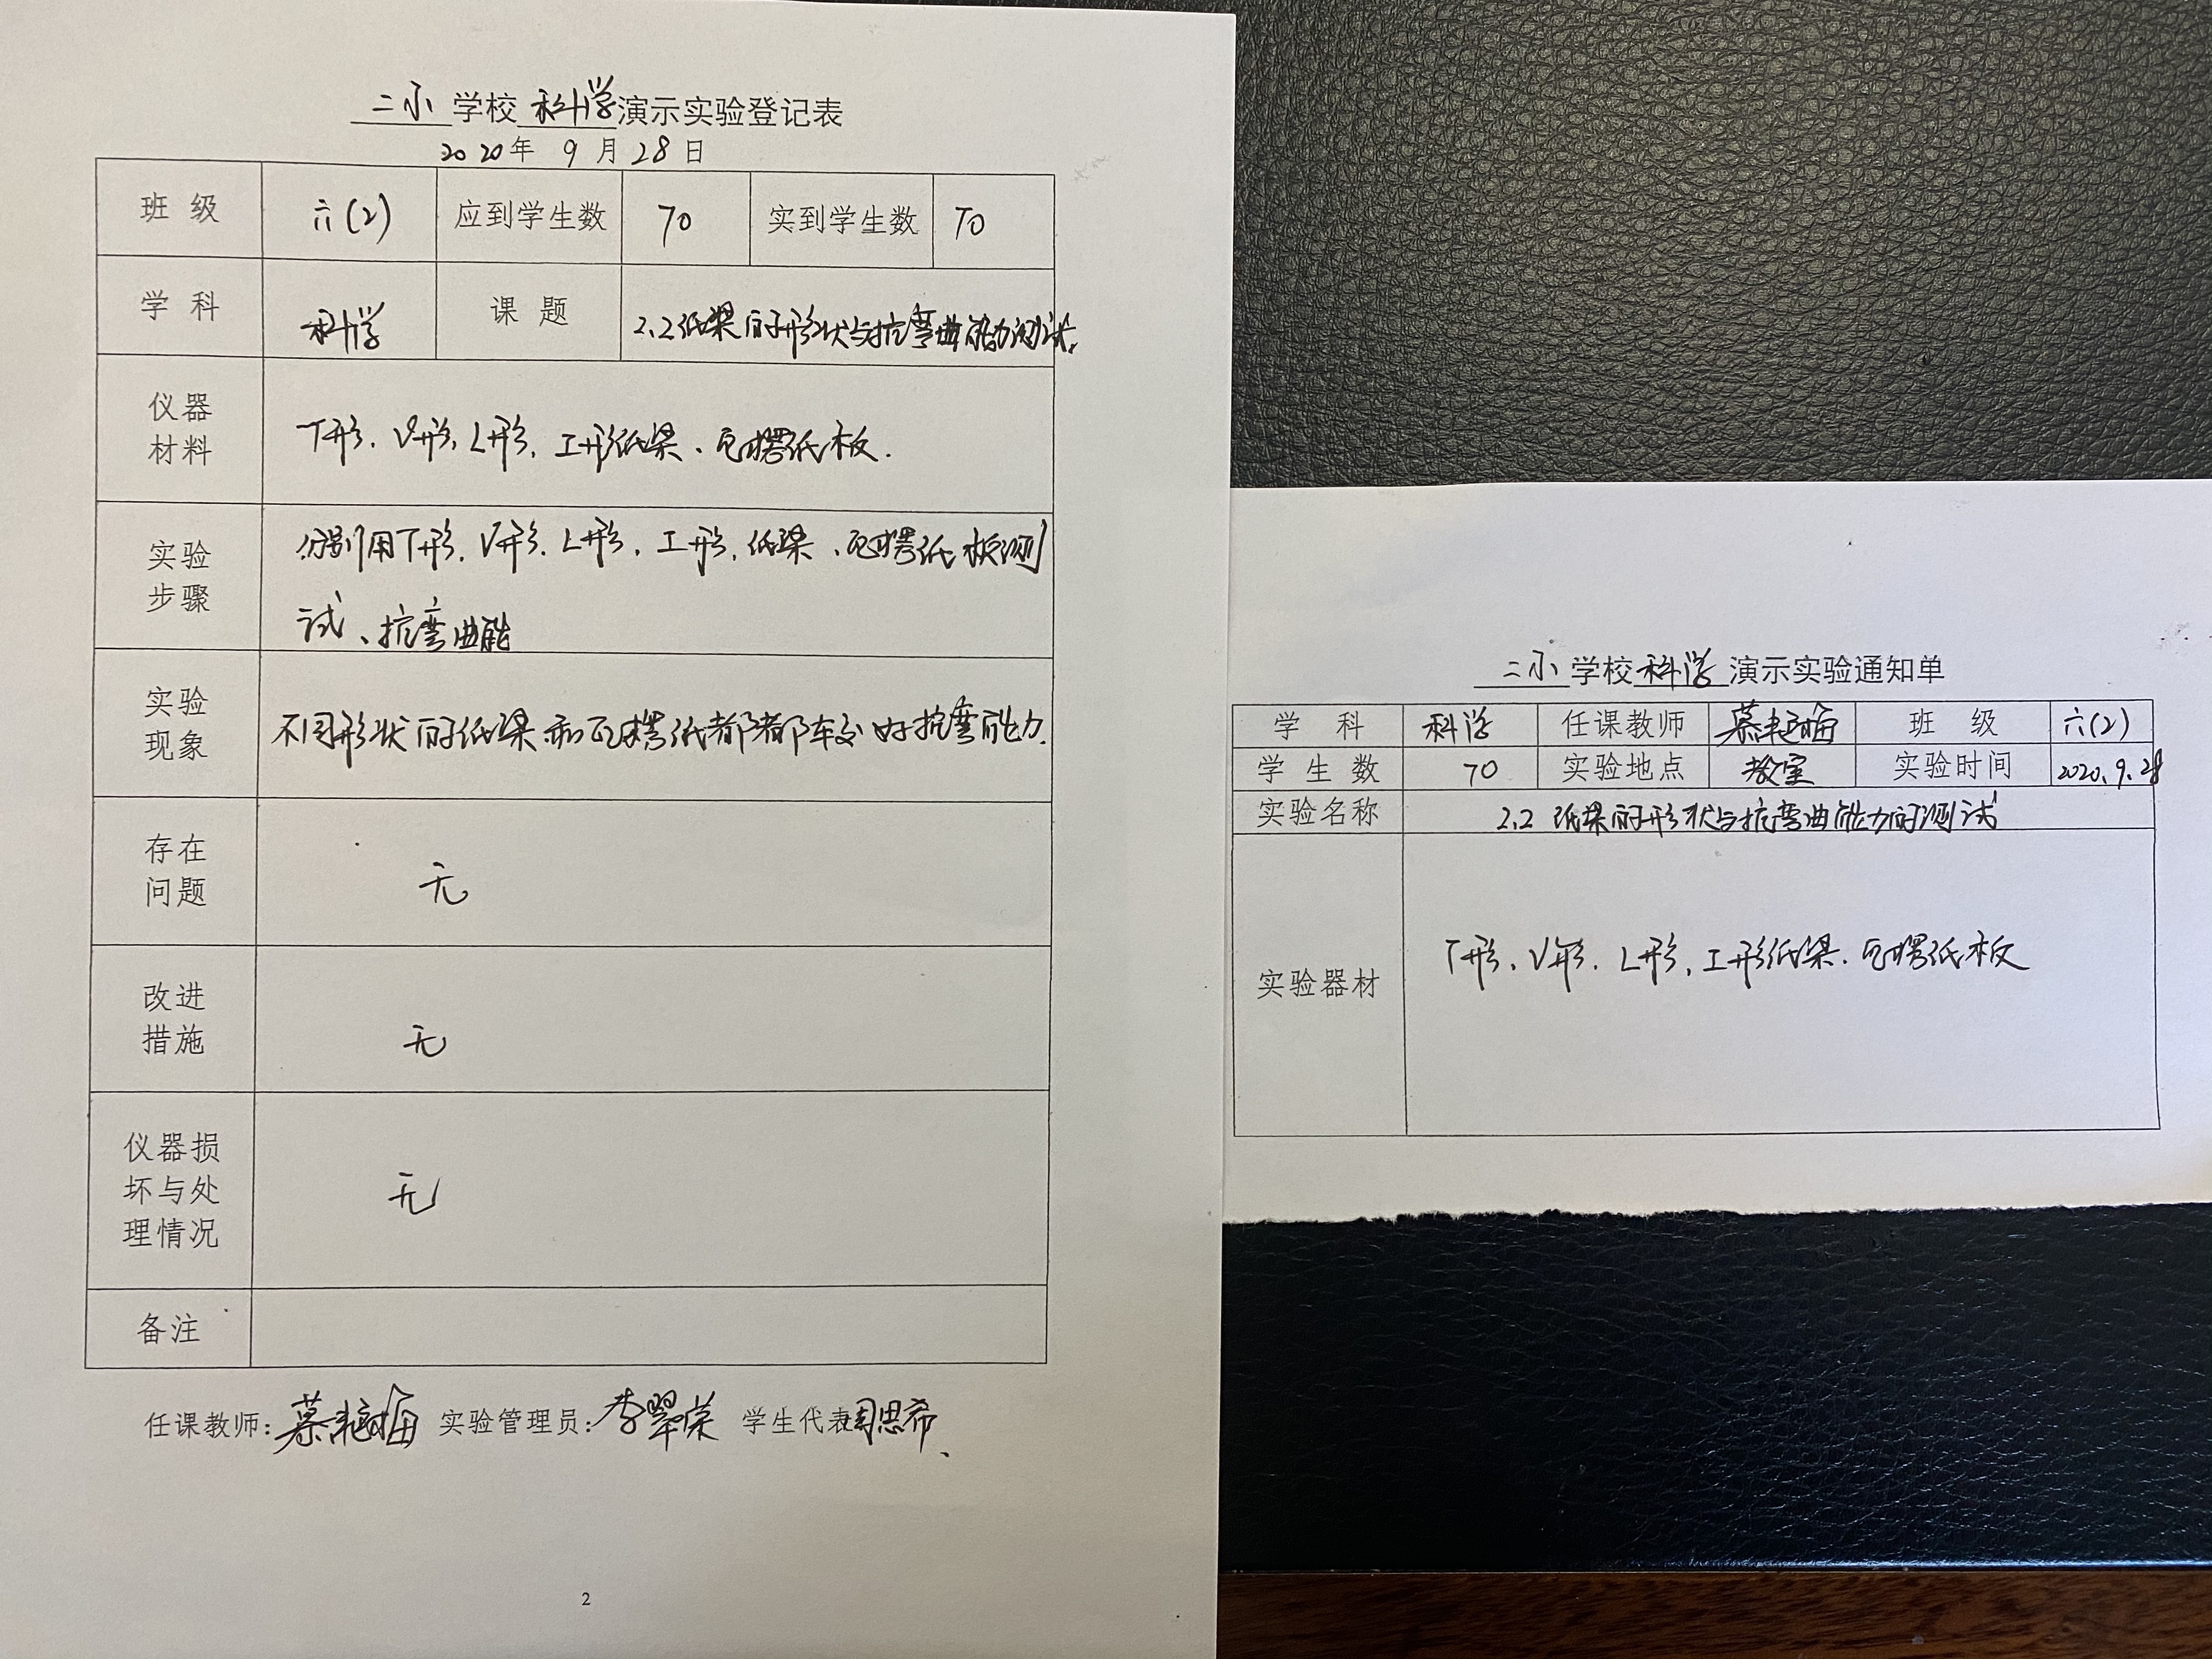 二小 学校 科学 演示实验登记表
2020年 9 月 28 日
班 级 六(2) 应到学生数 70 实到学生数 70
学 科 科学 课 题 2.2纸梁的形状与抗弯曲能力测试.
仪器
材料
T形、V形、L形、工形纸梁、瓦楞纸板.
实验
步骤
分别用T形、V形、L形、工形、纸梁、瓦楞纸板测
试、抗弯曲能
实验
现象
不同形状的纸梁和瓦楞纸都都较好抗弯能力.
存在
问题
无
改进
措施
无
仪器损
坏与处
理情况
无
备注
任课教师: 实验管理员:李翠荣 学生代表周思希
2
二小 学校 科学 演示实验通知单
学 科 科学 任课教师 班 级 六(2)
学 生 数 70 实验地点 教室 实验时间 2020.9.28
实验名称 2.2 纸梁的形状与抗弯曲能力的测试
实验器材 T形、V形、L形、工形纸梁、瓦楞纸板